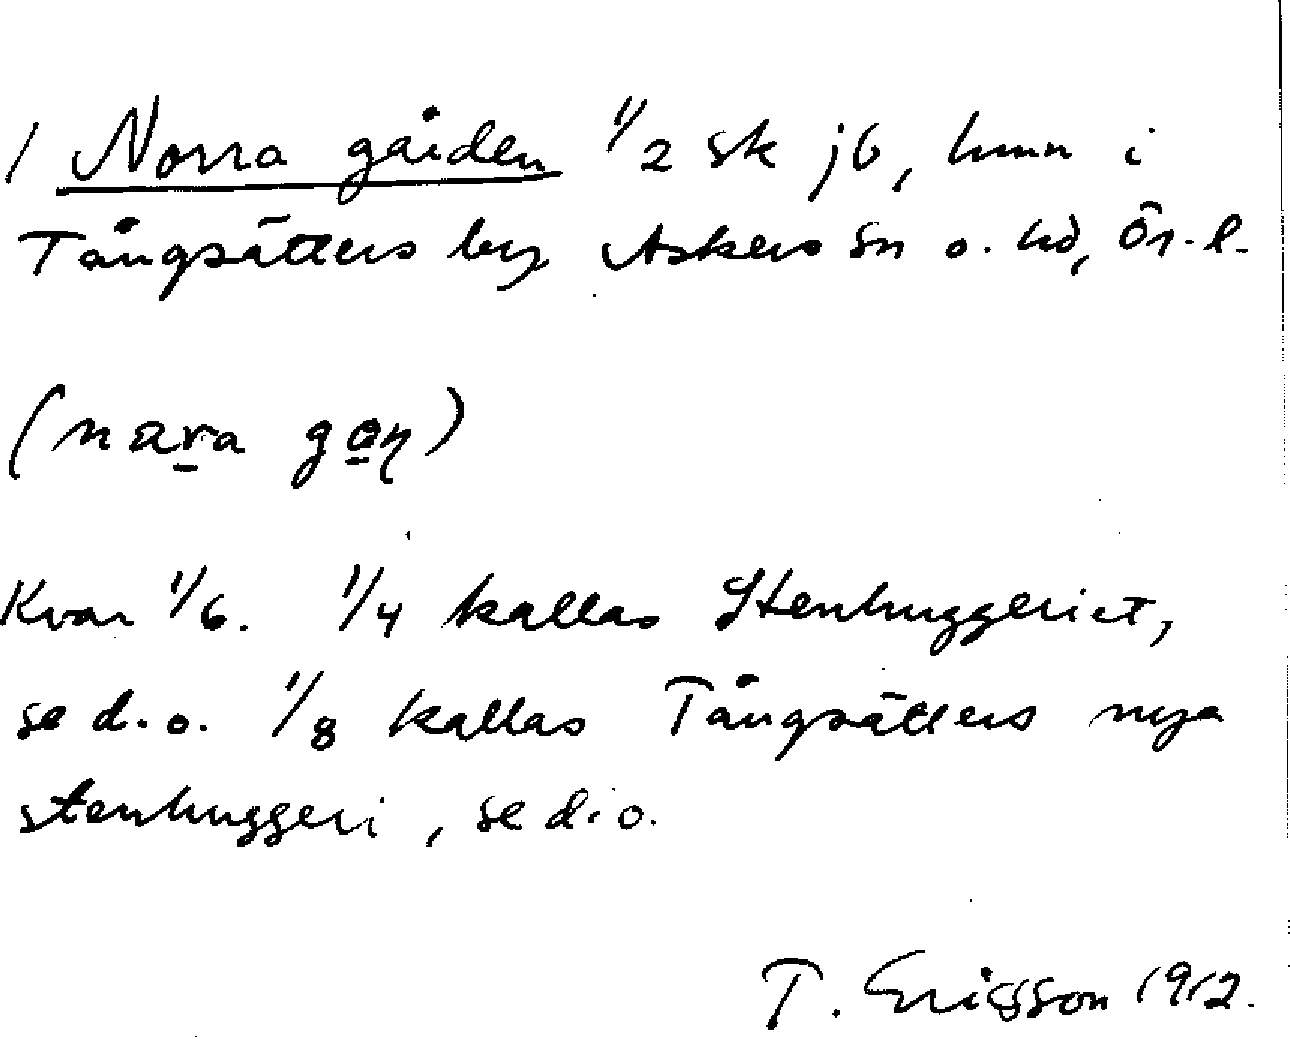 1 Norra gården 1/2 sk jb, hmn i
Tångsätters by Askers sn o. hd, Ör. l.
(nara gaɳ)
Kvar 1/6. 1/4 kallas Stenhuggeriet,
se d.o. 1/8 kallas Tångsätters nya
stenhuggeri, se d.o.
T. Ericsson 1912.